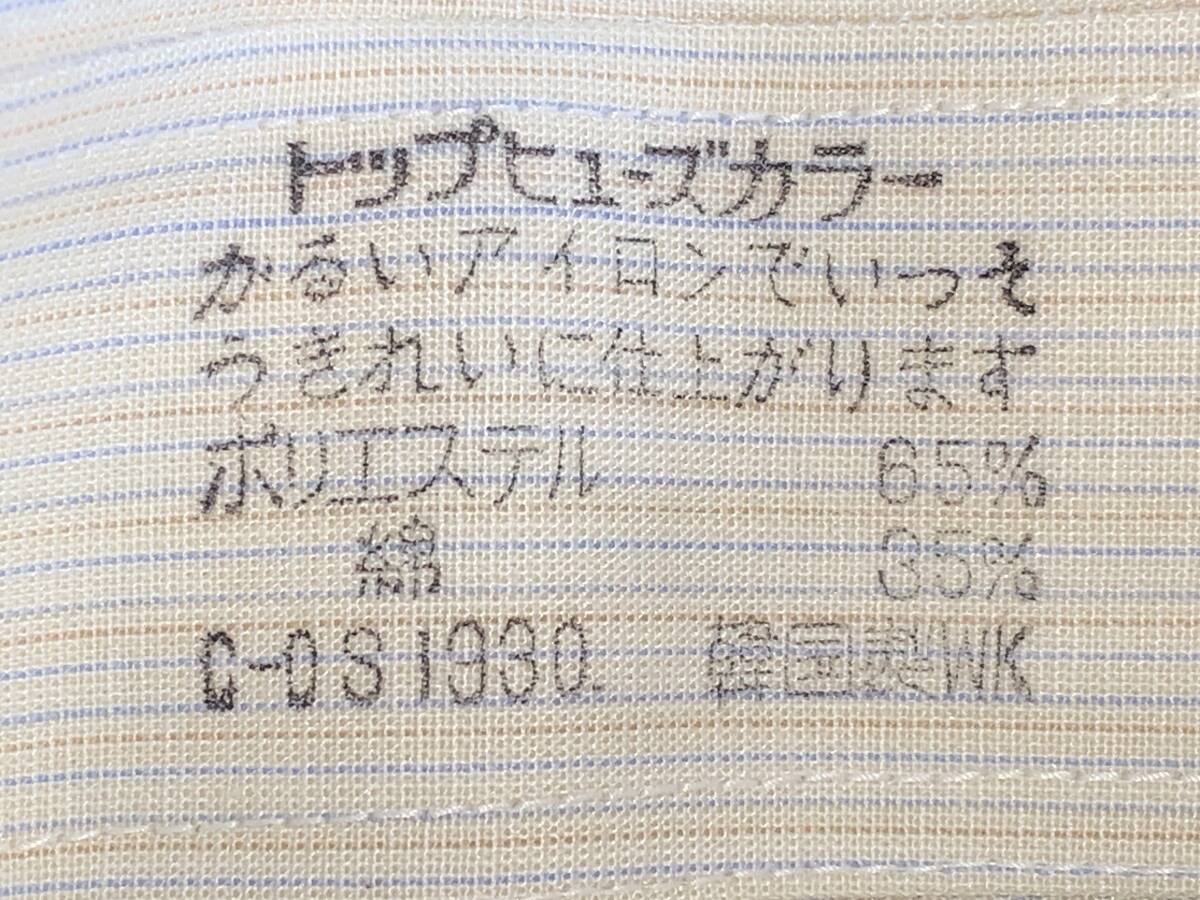 トップヒューズカラー
かるいアイロンでいっそ
うきれいに仕上がります
ポリエステル 65%
綿 35%
C-0S1930 韓国製WK